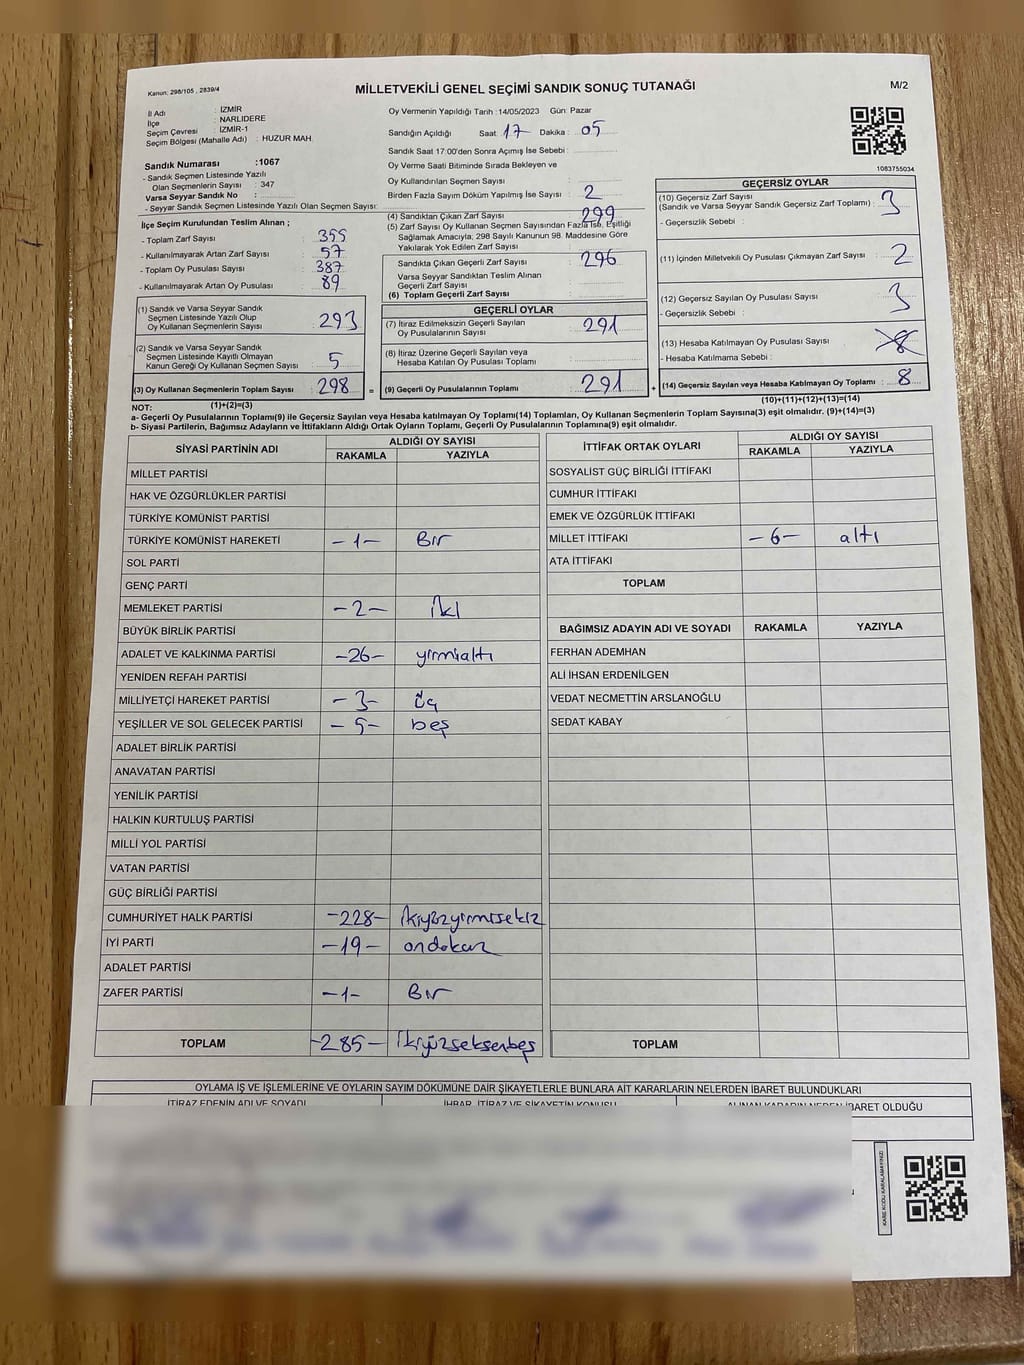 Kanun: 298/105 , 2839/4
MİLLETVEKİLİ GENEL SEÇİMİ SANDIK SONUÇ TUTANAĞI
M/2
İl Adı : İZMİR
İlçe : NARLIDERE
Seçim Çevresi : İZMİR-1
Seçim Bölgesi (Mahalle Adı) : HUZUR MAH.
Sandık Numarası :1067
- Sandık Seçmen Listesinde Yazılı
Olan Seçmenlerin Sayısı : 347
Varsa Seyyar Sandık No :
- Seyyar Sandık Seçmen Listesinde Yazılı Olan Seçmen Sayısı:
Oy Vermenin Yapıldığı Tarih :14/05/2023 Gün: Pazar
Sandığın Açıldığı Saat : 17 Dakika : 05
Sandık Saat 17:00'den Sonra Açımış İse Sebebi :
Oy Verme Saati Bitiminde Sırada Bekleyen ve
Oy Kullandırılan Seçmen Sayısı :
Birden Fazla Sayım Döküm Yapılmış İse Sayısı : 2
(4) Sandıktan Çıkan Zarf Sayısı : 299
(5) Zarf Sayısı Oy Kullanan Seçmen Sayısından Fazla İse, Eşitliği
Sağlamak Amacıyla; 298 Sayılı Kanunun 98. Maddesine Göre
Yakılarak Yok Edilen Zarf Sayısı :
1083755034
İlçe Seçim Kurulundan Teslim Alınan ;
- Toplam Zarf Sayısı : 355
- Kullanılmayarak Artan Zarf Sayısı : 57
- Toplam Oy Pusulası Sayısı : 387
- Kullanılmayarak Artan Oy Pusulası : 89
(1) Sandık ve Varsa Seyyar Sandık
Seçmen Listesinde Yazılı Olup
Oy Kullanan Seçmenlerin Sayısı : 293
(2) Sandık ve Varsa Seyyar Sandık
Seçmen Listesinde Kayıtlı Olmayan
Kanun Gereği Oy Kullanan Seçmen Sayısı : 5
(3) Oy Kullanan Seçmenlerin Toplam Sayısı : 298 =
(1)+(2)=(3)
Sandıkta Çıkan Geçerli Zarf Sayısı : 296
Varsa Seyyar Sandıktan Teslim Alınan
Geçerli Zarf Sayısı :
(6) Toplam Geçerli Zarf Sayısı :
GEÇERLİ OYLAR
(7) İtiraz Edilmeksizin Geçerli Sayılan
Oy Pusulalarının Sayısı : 291
(8) İtiraz Üzerine Geçerli Sayılan veya
Hesaba Katılan Oy Pusulası Toplamı :
(9) Geçerli Oy Pusulalarının Toplamı : 291 +
GEÇERSİZ OYLAR
(10) Geçersiz Zarf Sayısı
(Sandık ve Varsa Seyyar Sandık Geçersiz Zarf Toplamı) : 3
- Geçersizlik Sebebi :
(11) İçinden Milletvekili Oy Pusulası Çıkmayan Zarf Sayısı : 2
(12) Geçersiz Sayılan Oy Pusulası Sayısı : 3
- Geçersizlik Sebebi :
(13) Hesaba Katılmayan Oy Pusulası Sayısı : 8
- Hesaba Katılmama Sebebi :
(14) Geçersiz Sayılan veya Hesaba Katılmayan Oy Toplamı : 8
(10)+(11)+(12)+(13)=(14)
NOT:
a- Geçerli Oy Pusulalarının Toplamı(9) ile Geçersiz Sayılan veya Hesaba katılmayan Oy Toplamı(14) Toplamları, Oy Kullanan Seçmenlerin Toplam Sayısına(3) eşit olmalıdır. (9)+(14)=(3)
b- Siyasi Partilerin, Bağımsız Adayların ve İttifakların Aldığı Ortak Oyların Toplamı, Geçerli Oy Pusulalarının Toplamına(9) eşit olmalıdır.
SİYASİ PARTİNİN ADI
ALDIĞI OY SAYISI
RAKAMLA YAZIYLA
MİLLET PARTİSİ
HAK VE ÖZGÜRLÜKLER PARTİSİ
TÜRKİYE KOMÜNİST PARTİSİ
TÜRKİYE KOMÜNİST HAREKETİ -1- Bir
SOL PARTİ
GENÇ PARTİ
MEMLEKET PARTİSİ -2- İki
BÜYÜK BİRLİK PARTİSİ
ADALET VE KALKINMA PARTİSİ -26- yirmialtı
YENİDEN REFAH PARTİSİ
MİLLİYETÇİ HAREKET PARTİSİ -3- üç
YEŞİLLER VE SOL GELECEK PARTİSİ -5- beş
ADALET BİRLİK PARTİSİ
ANAVATAN PARTİSİ
YENİLİK PARTİSİ
HALKIN KURTULUŞ PARTİSİ
MİLLİ YOL PARTİSİ
VATAN PARTİSİ
GÜÇ BİRLİĞİ PARTİSİ
CUMHURİYET HALK PARTİSİ -228- ikiyüzyirmisekiz
İYİ PARTİ -19- ondokuz
ADALET PARTİSİ
ZAFER PARTİSİ -1- Bir
TOPLAM -285- ikiyüzseksenbeş
İTTİFAK ORTAK OYLARI
ALDIĞI OY SAYISI
RAKAMLA YAZIYLA
SOSYALİST GÜÇ BİRLİĞİ İTTİFAKI
CUMHUR İTTİFAKI
EMEK VE ÖZGÜRLÜK İTTİFAKI
MİLLET İTTİFAKI -6- altı
ATA İTTİFAKI
TOPLAM
BAĞIMSIZ ADAYIN ADI VE SOYADI RAKAMLA YAZIYLA
FERHAN ADEMHAN
ALİ İHSAN ERDENİLGEN
VEDAT NECMETTİN ARSLANOĞLU
SEDAT KABAY
TOPLAM
OYLAMA İŞ VE İŞLEMLERİNE VE OYLARIN SAYIM DÖKÜMÜNE DAİR ŞİKAYETLERLE BUNLARA AİT KARARLARIN NELERDEN İBARET BULUNDUKLARI
İTİRAZ EDENİN ADI VE SOYADI İHBAR, İTİRAZ VE ŞİKAYETİN KONUSU ALINAN KARARIN NEDEN İBARET OLDUĞU
KARE KODU KARALAMAYINIZ!